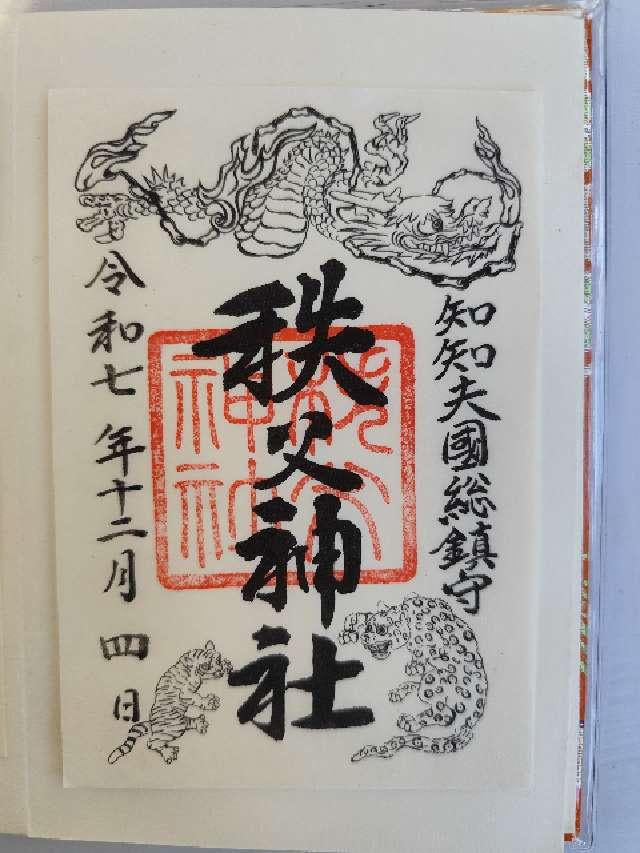 知知夫國総鎮守
秩父神社
令和七年十二月四日
秩父
神社